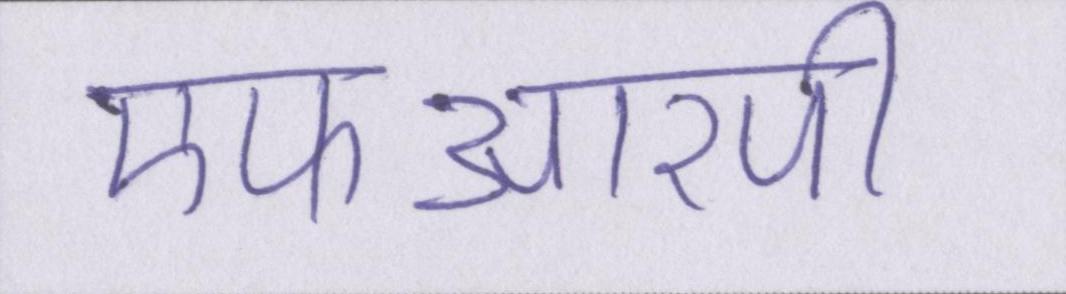 एफआरपी